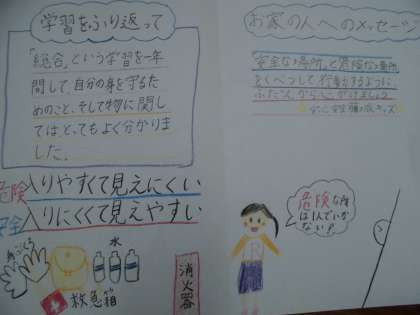 学習をふり返って
「総合」という学習を一年
間して、自分の身を守るた
めのこと、そして物に関し
ては、とってもよく分かりま
した。
危険 入りやすくて見えにくい
安全 入りにくくて見えやすい
水
救急箱
消火器
お家の人へのメッセージ
安全な場所と危険な場所
をくべつして行動するように、
ふだんから心がけましょう。
危険な所
は1人でいか
ない!